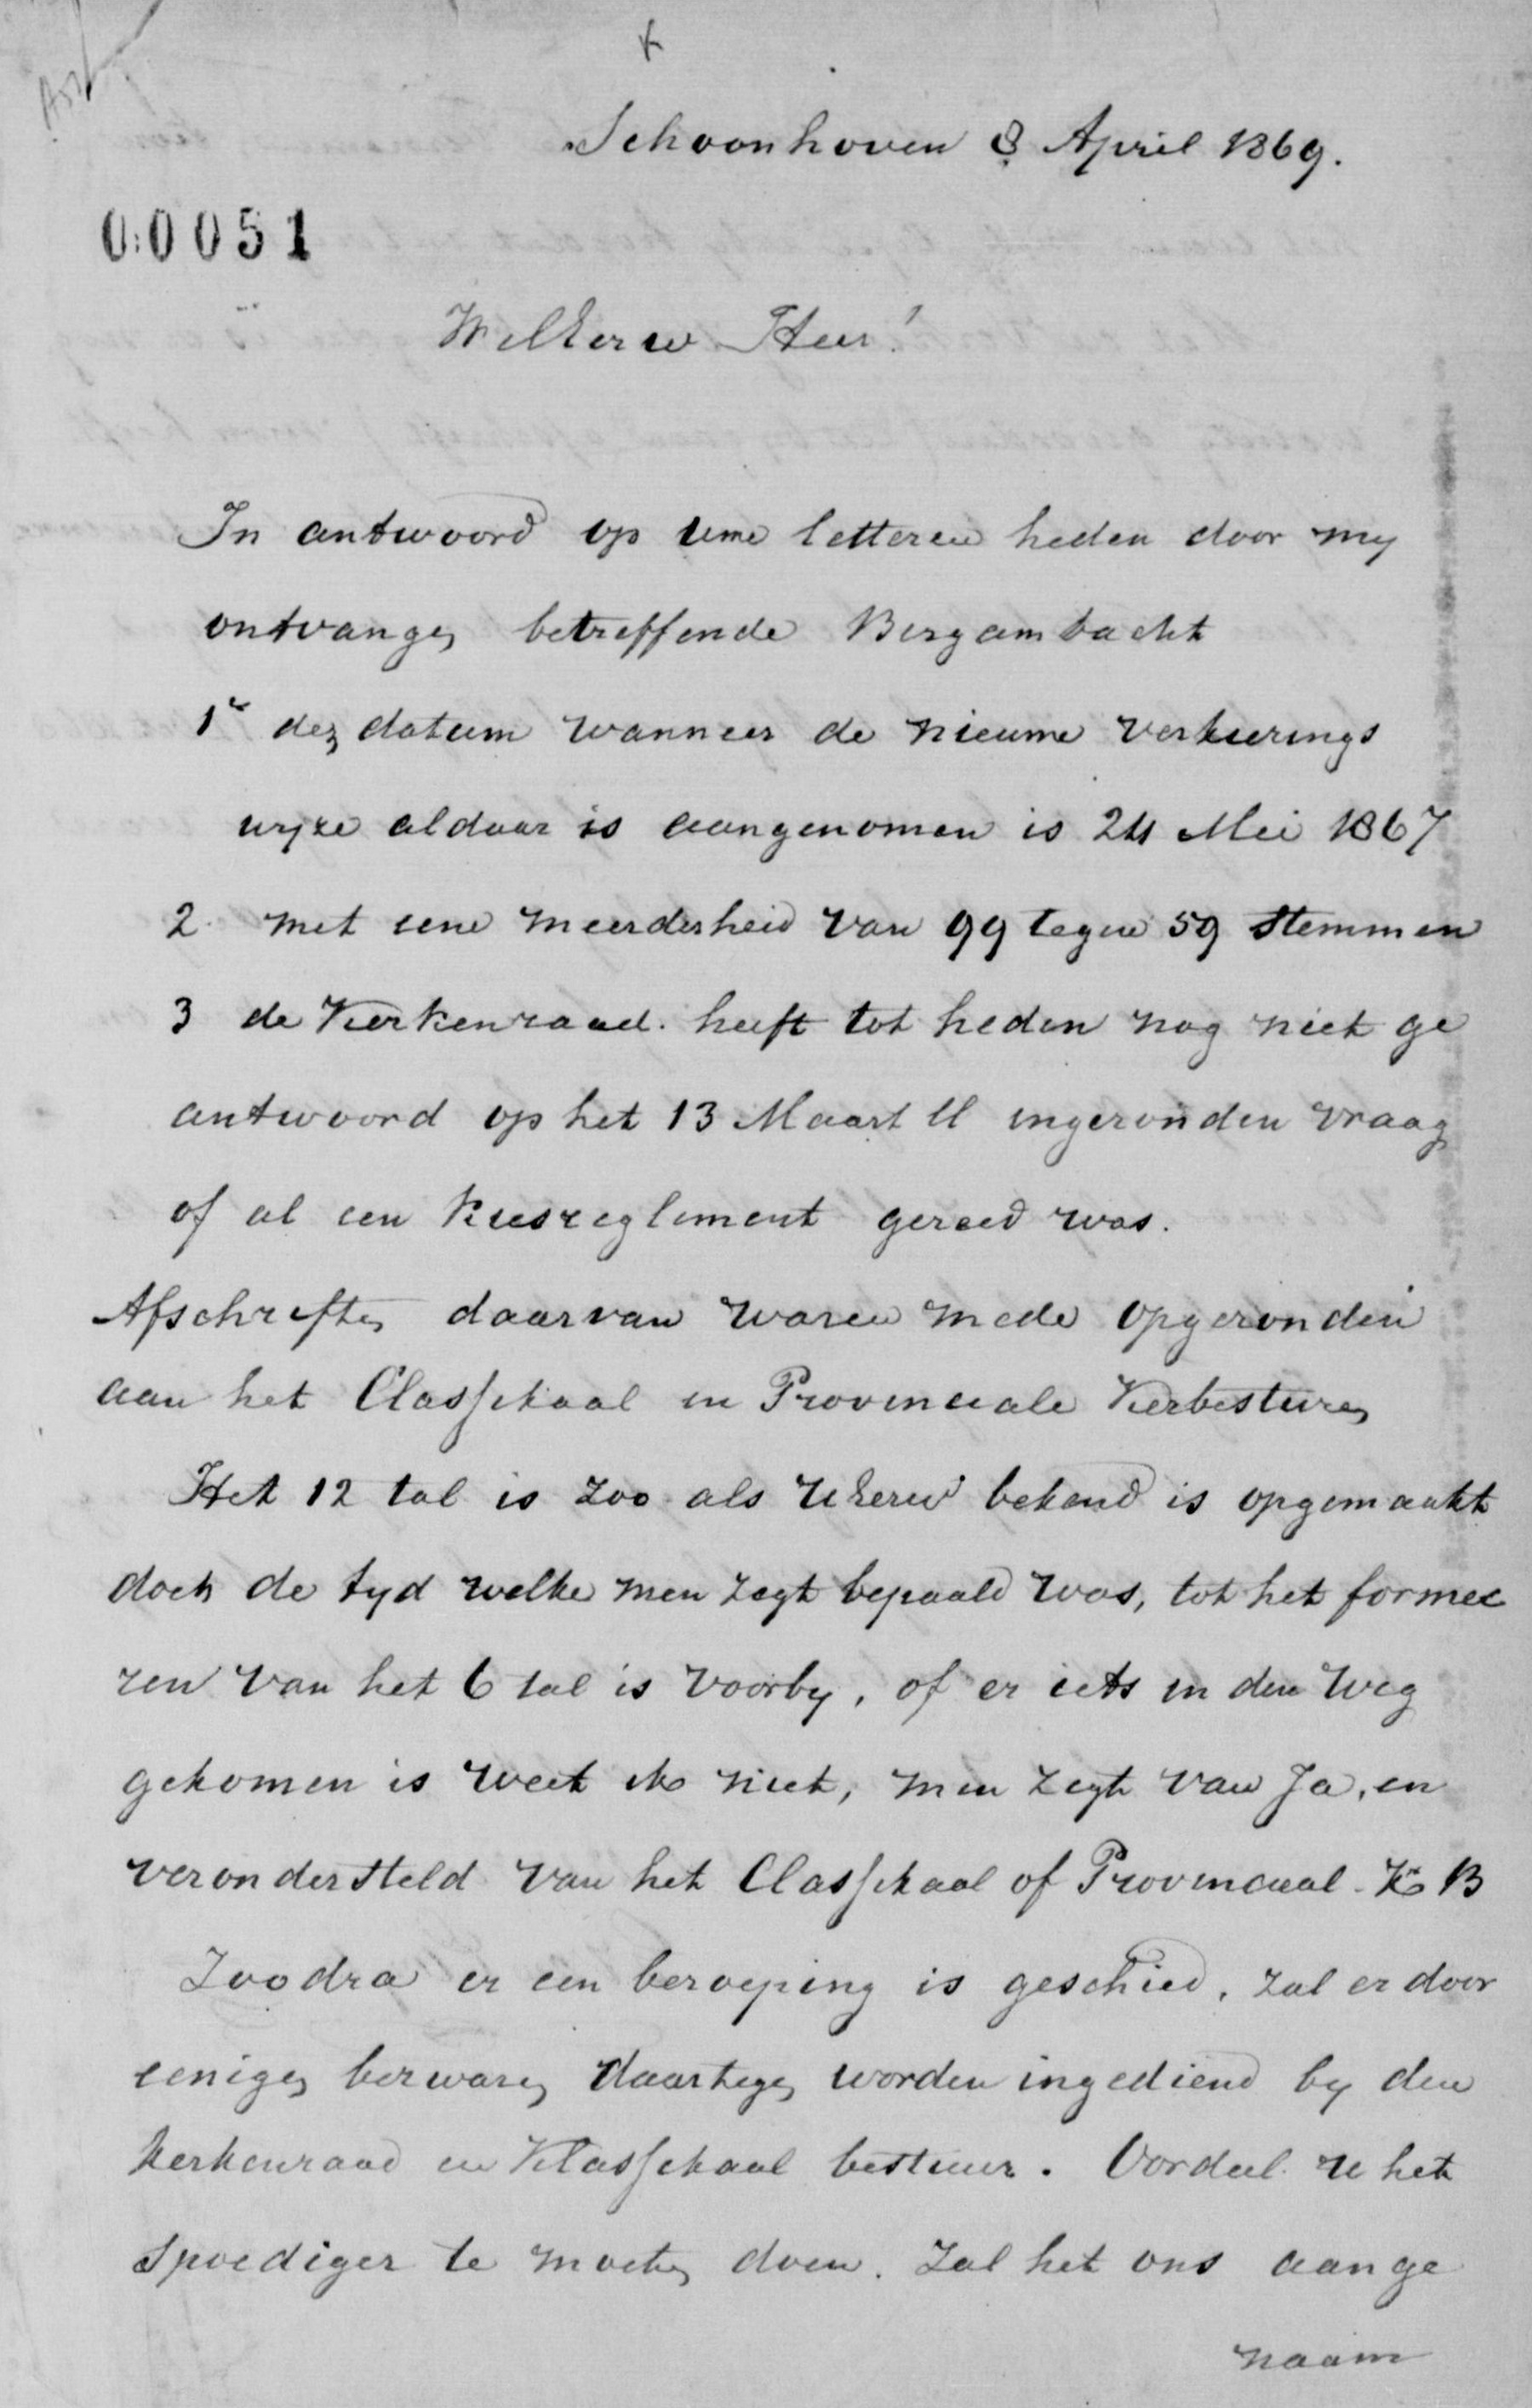 Schoonhoven 8 April 1869.
0:0051
WelEerw Heer!
In antwoord op uwe letteren heden door my
ontvangen betreffende Bergambacht
1e den datum wanneer de nieuwe verkiezings
wyze aldaar is aangenomen is 24 Mei 1867
2 met eene meerderheid van 99 tegen 59 stemmen
3 de Kerkenraad heeft tot heden nog niet ge
antwoord op het 13 Maart ll ingezonden vraag
of al een kiesreglement gereed was.
Afschriften daarvan waren mede opgezonden
aan het Classikaal en Provinciale Kerbesturen
Het 12 tal is zoo als UEerw bekend is opgemaakt
doch de tyd welke men zegt bepaald was, tot het formee
ren van het 6 tal is voorby, of er iets in den weg
gekomen is weet ik niet, men zegt van Ja, en
verondersteld van het Classikaal of Provinciaal K B
Zoodra er een beroeping is geschied, zal er door
eenigen bezwaren daartegen worden ingediend by den
kerkenraad en Klassikaal bestuur. Oordeel u het
spoediger te moeten doen. Zal het ons aange
naam